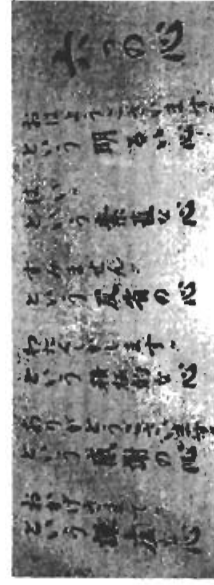 六つの心
おはようございます。
という 明るい心
はい。
という 素直な心
すみません。
という 反省の心
わたくしがします。
という 積極的な心
ありがとうございます。
という 感謝の心
おかげさまで
という 謙虚な心